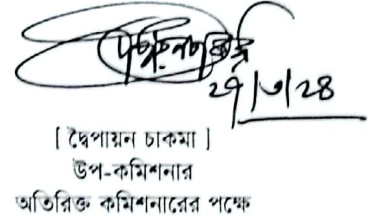 ২৭/৩/২৪
[ দ্বৈপায়ন চাকমা ]
উপ-কমিশনার
অতিরিক্ত কমিশনারের পক্ষে